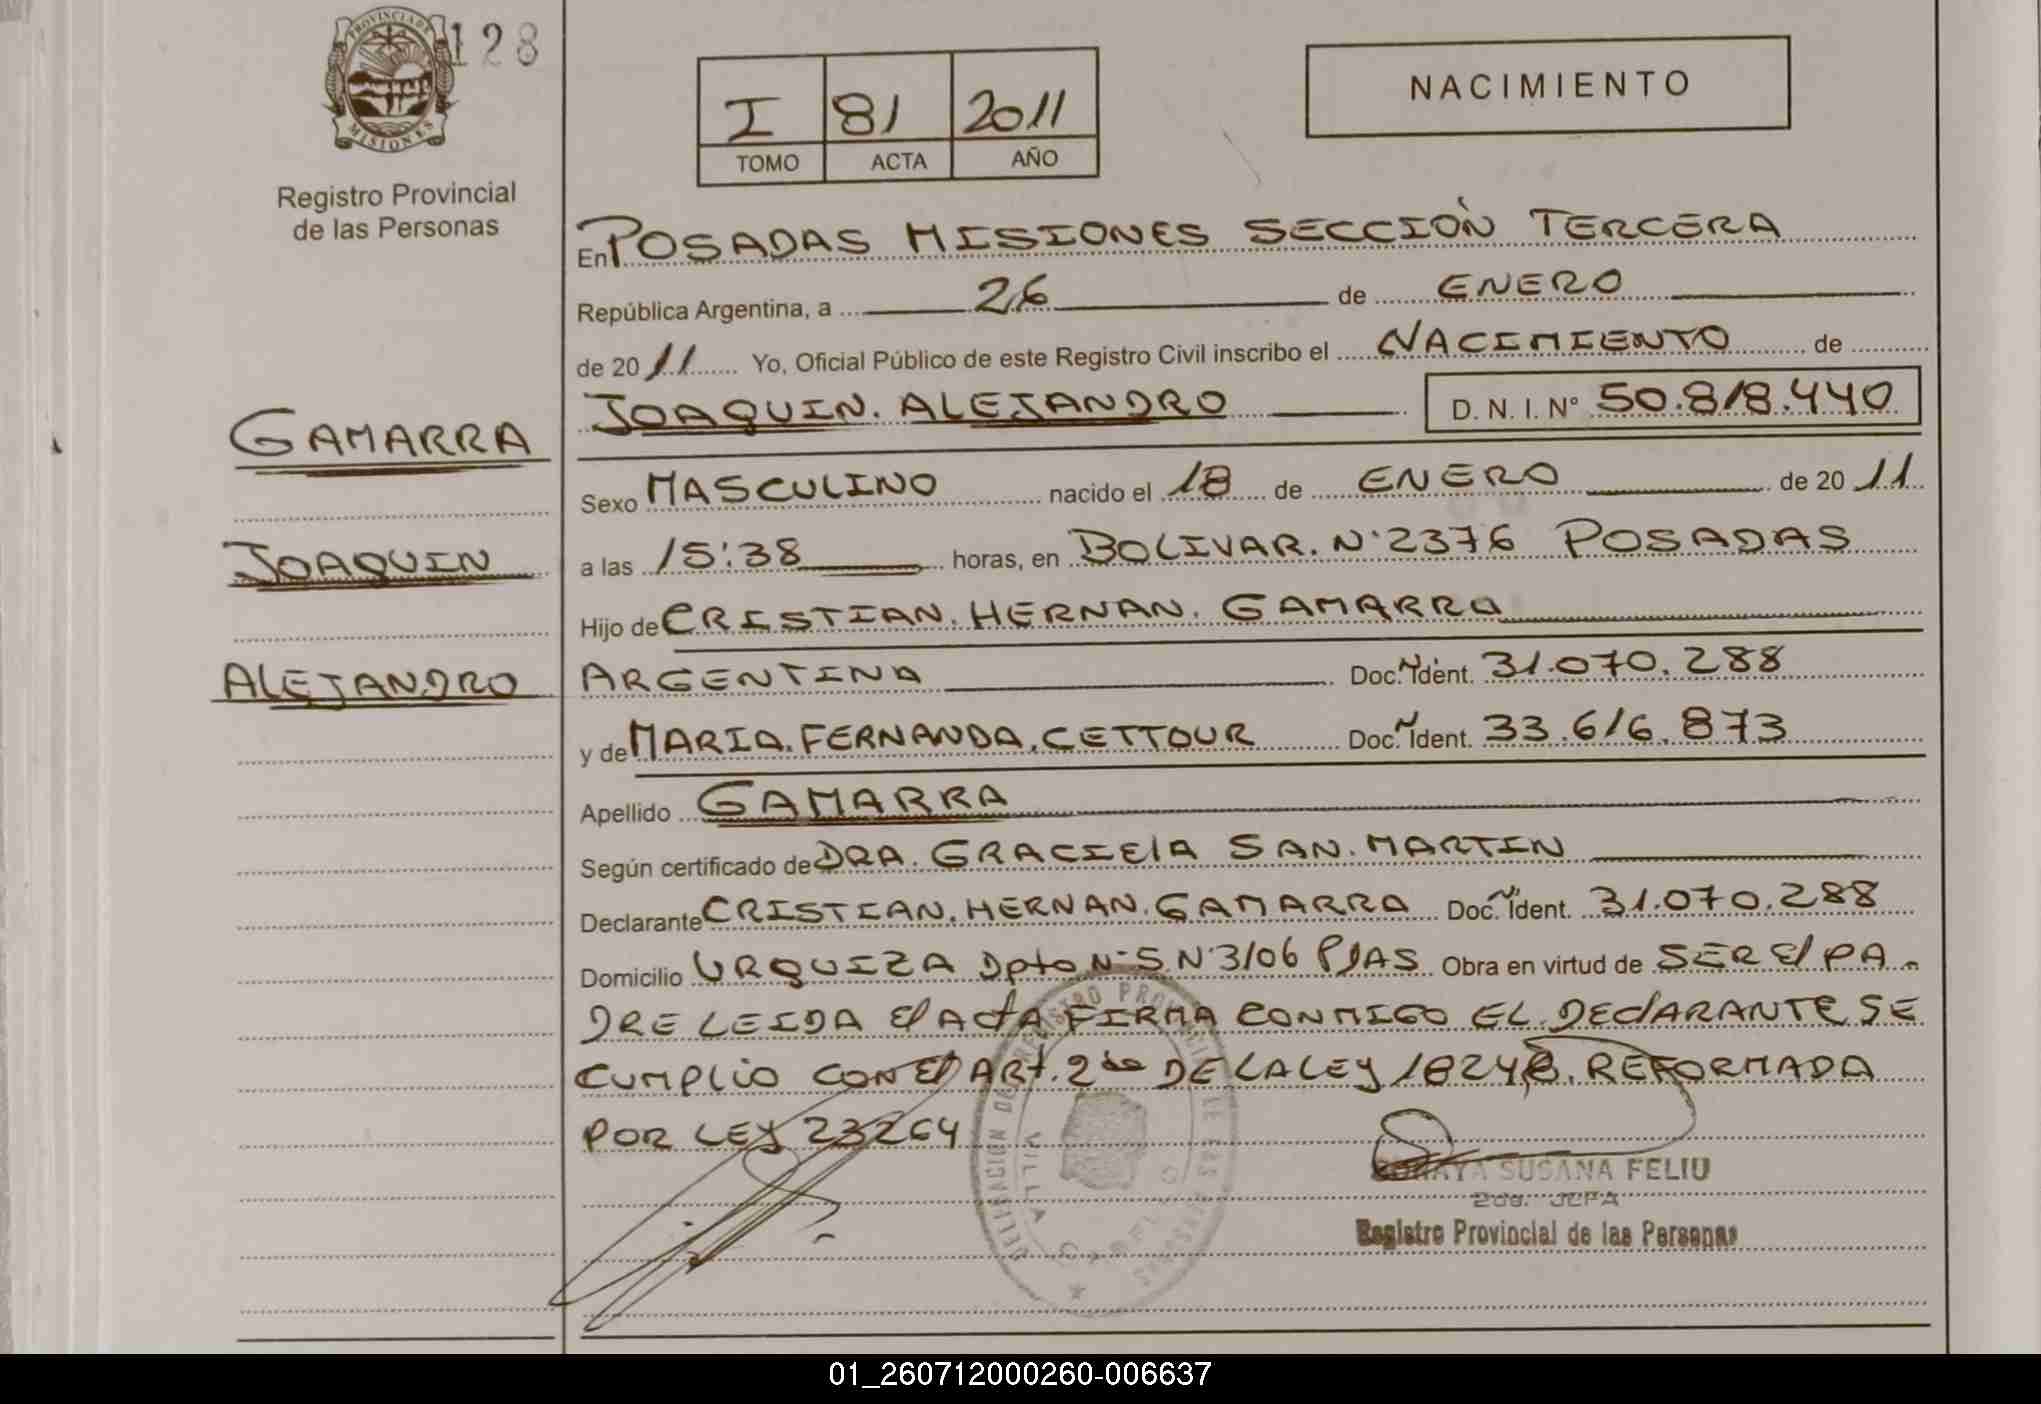 PROVINCIA DE
MISIONES
128
Registro Provincial
de las Personas
I 81 2011
TOMO ACTA AÑO
NACIMIENTO
En POSADAS MISIONES SECCIÓN TERCERA
República Argentina, a 26 de ENERO
de 2011 Yo, Oficial Público de este Registro Civil inscribo el NACIMIENTO de
JOAQUIN. ALEJANDRO D. N. I. N° 50.818.440
GAMARRA
JOAQUIN
ALEJANDRO
Sexo MASCULINO nacido el 18 de ENERO de 2011
a las 15:38 horas, en BOLIVAR. N° 2376 POSADAS
Hijo de CRISTIAN. HERNAN. GAMARRA
ARGENTINA Doc. Ident. 31.070.288
y de MARIA. FERNANDA. CETTOUR Doc. Ident. 33.616.873
Apellido GAMARRA
Según certificado de DRA. GRACIEIA SAN. MARTIN
Declarante CRISTIAN. HERNAN. GAMARRA Doc. Ident. 31.070.288
Domicilio URQUIZA Dpto N° 5 N° 3106 PDAS Obra en virtud de SER El PA-
DRE LEIDA El ActA FIRMA CONMIGO EL DEClARANTE SE
CUMPLIO CON El ARt. 2do DE LA LEY 18248. REFORMADA
POR LEY 23264
DELEGACION DE REGISTRO PROVINCIAL DE LAS PERSONAS
VILLA CABELLO
SORAYA SUSANA FELIU
2da. JEFA
Registro Provincial de las Personas
01_260712000260-006637